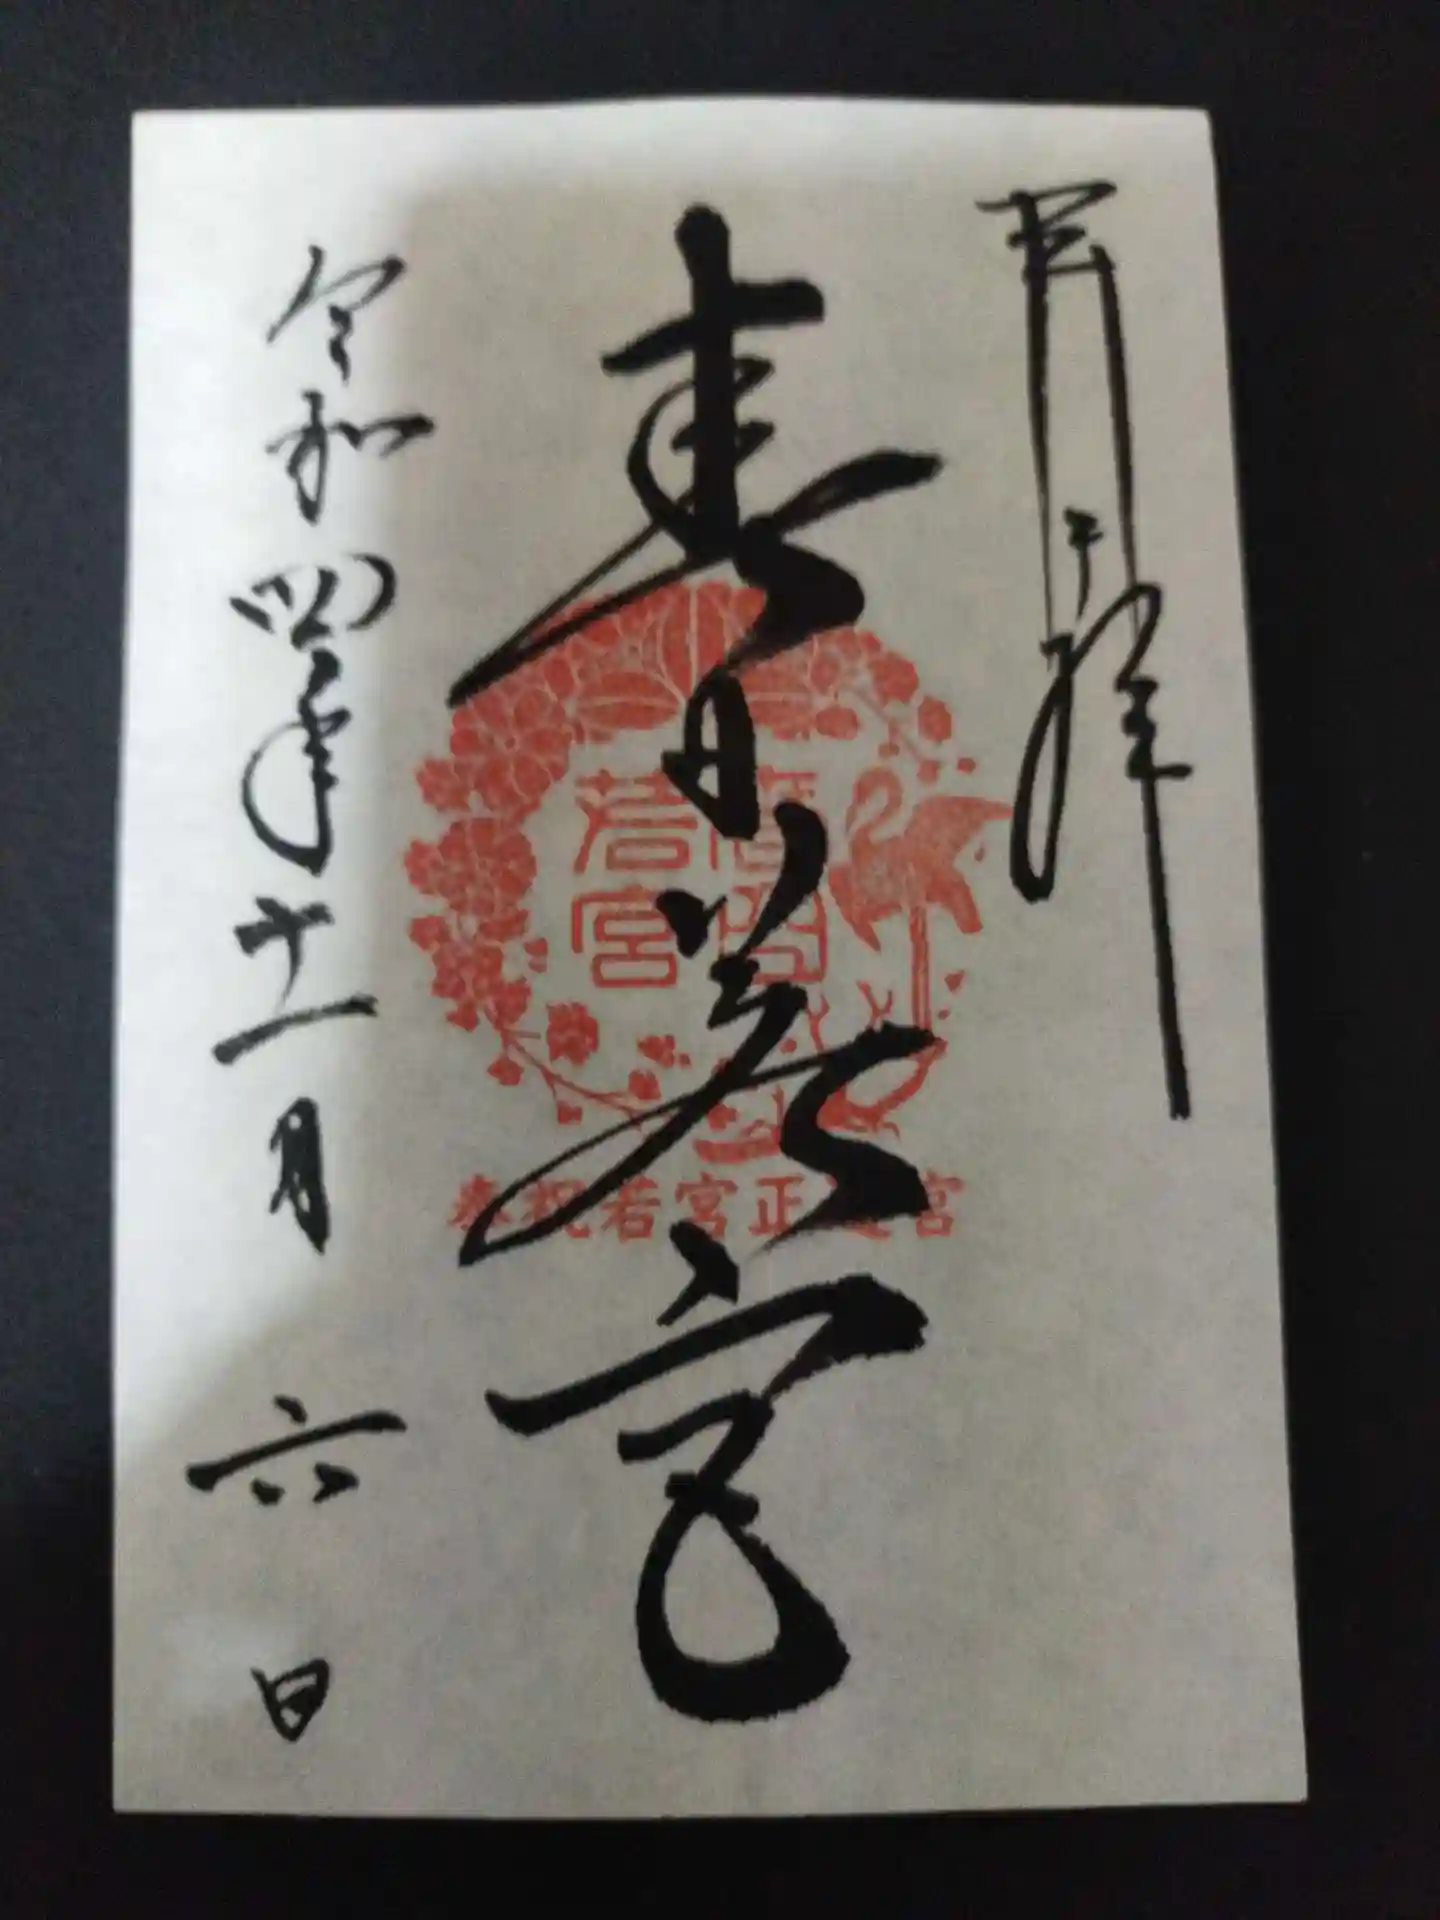 奉拝
春日若宮
若宮
奉祝若宮正遷宮
令和四年十一月六日